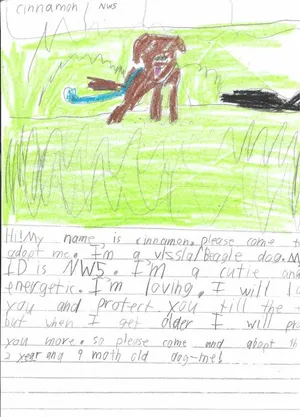 cinnamon / NWS
Hi! My name is cinnamon. please come to
adopt me. I'm a vizsla/Beagle dog. My
ID is NW5. I'm a cutie and
energetic. I'm loving. I will lo
you and protect you till the
but when I get older I will pro
you more. so please come and adopt th
2 year and 9 moth old dog-me!